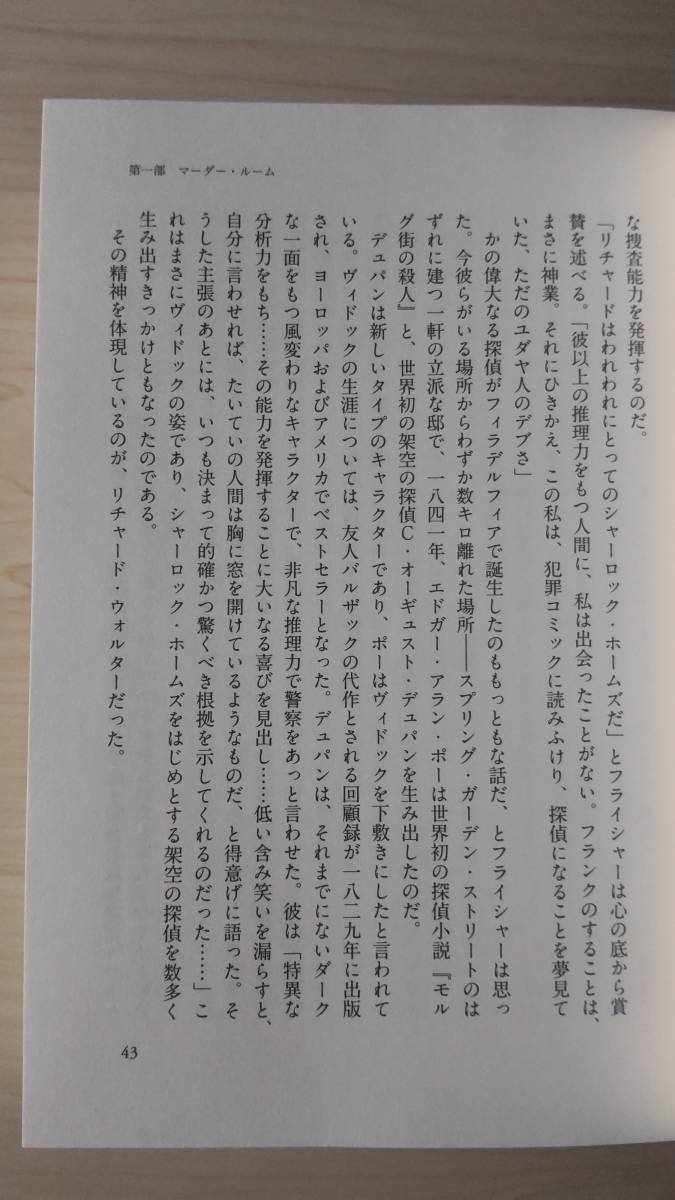 第一部　マーダー・ルーム
な捜査能力を発揮するのだ。
「リチャードはわれわれにとってのシャーロック・ホームズだ」とフライシャーは心の底から賞
賛を述べる。「彼以上の推理力をもつ人間に、私は出会ったことがない。フランクのすることは、
まさに神業。それにひきかえ、この私は、犯罪コミックに読みふけり、探偵になることを夢見て
いた、ただのユダヤ人のデブさ」
かの偉大なる探偵がフィラデルフィアで誕生したのももっともな話だ、とフライシャーは思っ
た。今彼らがいる場所からわずか数キロ離れた場所――スプリング・ガーデン・ストリートのは
ずれに建つ一軒の立派な邸で、一八四一年、エドガー・アラン・ポーは世界初の探偵小説『モル
グ街の殺人』と、世界初の架空の探偵C・オーギュスト・デュパンを生み出したのだ。
デュパンは新しいタイプのキャラクターであり、ポーはヴィドックを下敷きにしたと言われて
いる。ヴィドックの生涯については、友人バルザックの代作とされる回顧録が一八二九年に出版
され、ヨーロッパおよびアメリカでベストセラーとなった。デュパンは、それまでにないダーク
な一面をもつ風変わりなキャラクターで、非凡な推理力で警察をあっと言わせた。彼は「特異な
分析力をもち……その能力を発揮することに大いなる喜びを見出し……低い含み笑いを漏らすと、
自分に言わせれば、たいていの人間は胸に窓を開けているようなものだ、と得意げに語った。そ
うした主張のあとには、いつも決まって的確かつ驚くべき根拠を示してくれるのだった……」こ
れはまさにヴィドックの姿であり、シャーロック・ホームズをはじめとする架空の探偵を数多く
生み出すきっかけともなったのである。
その精神を体現しているのが、リチャード・ウォルターだった。
43